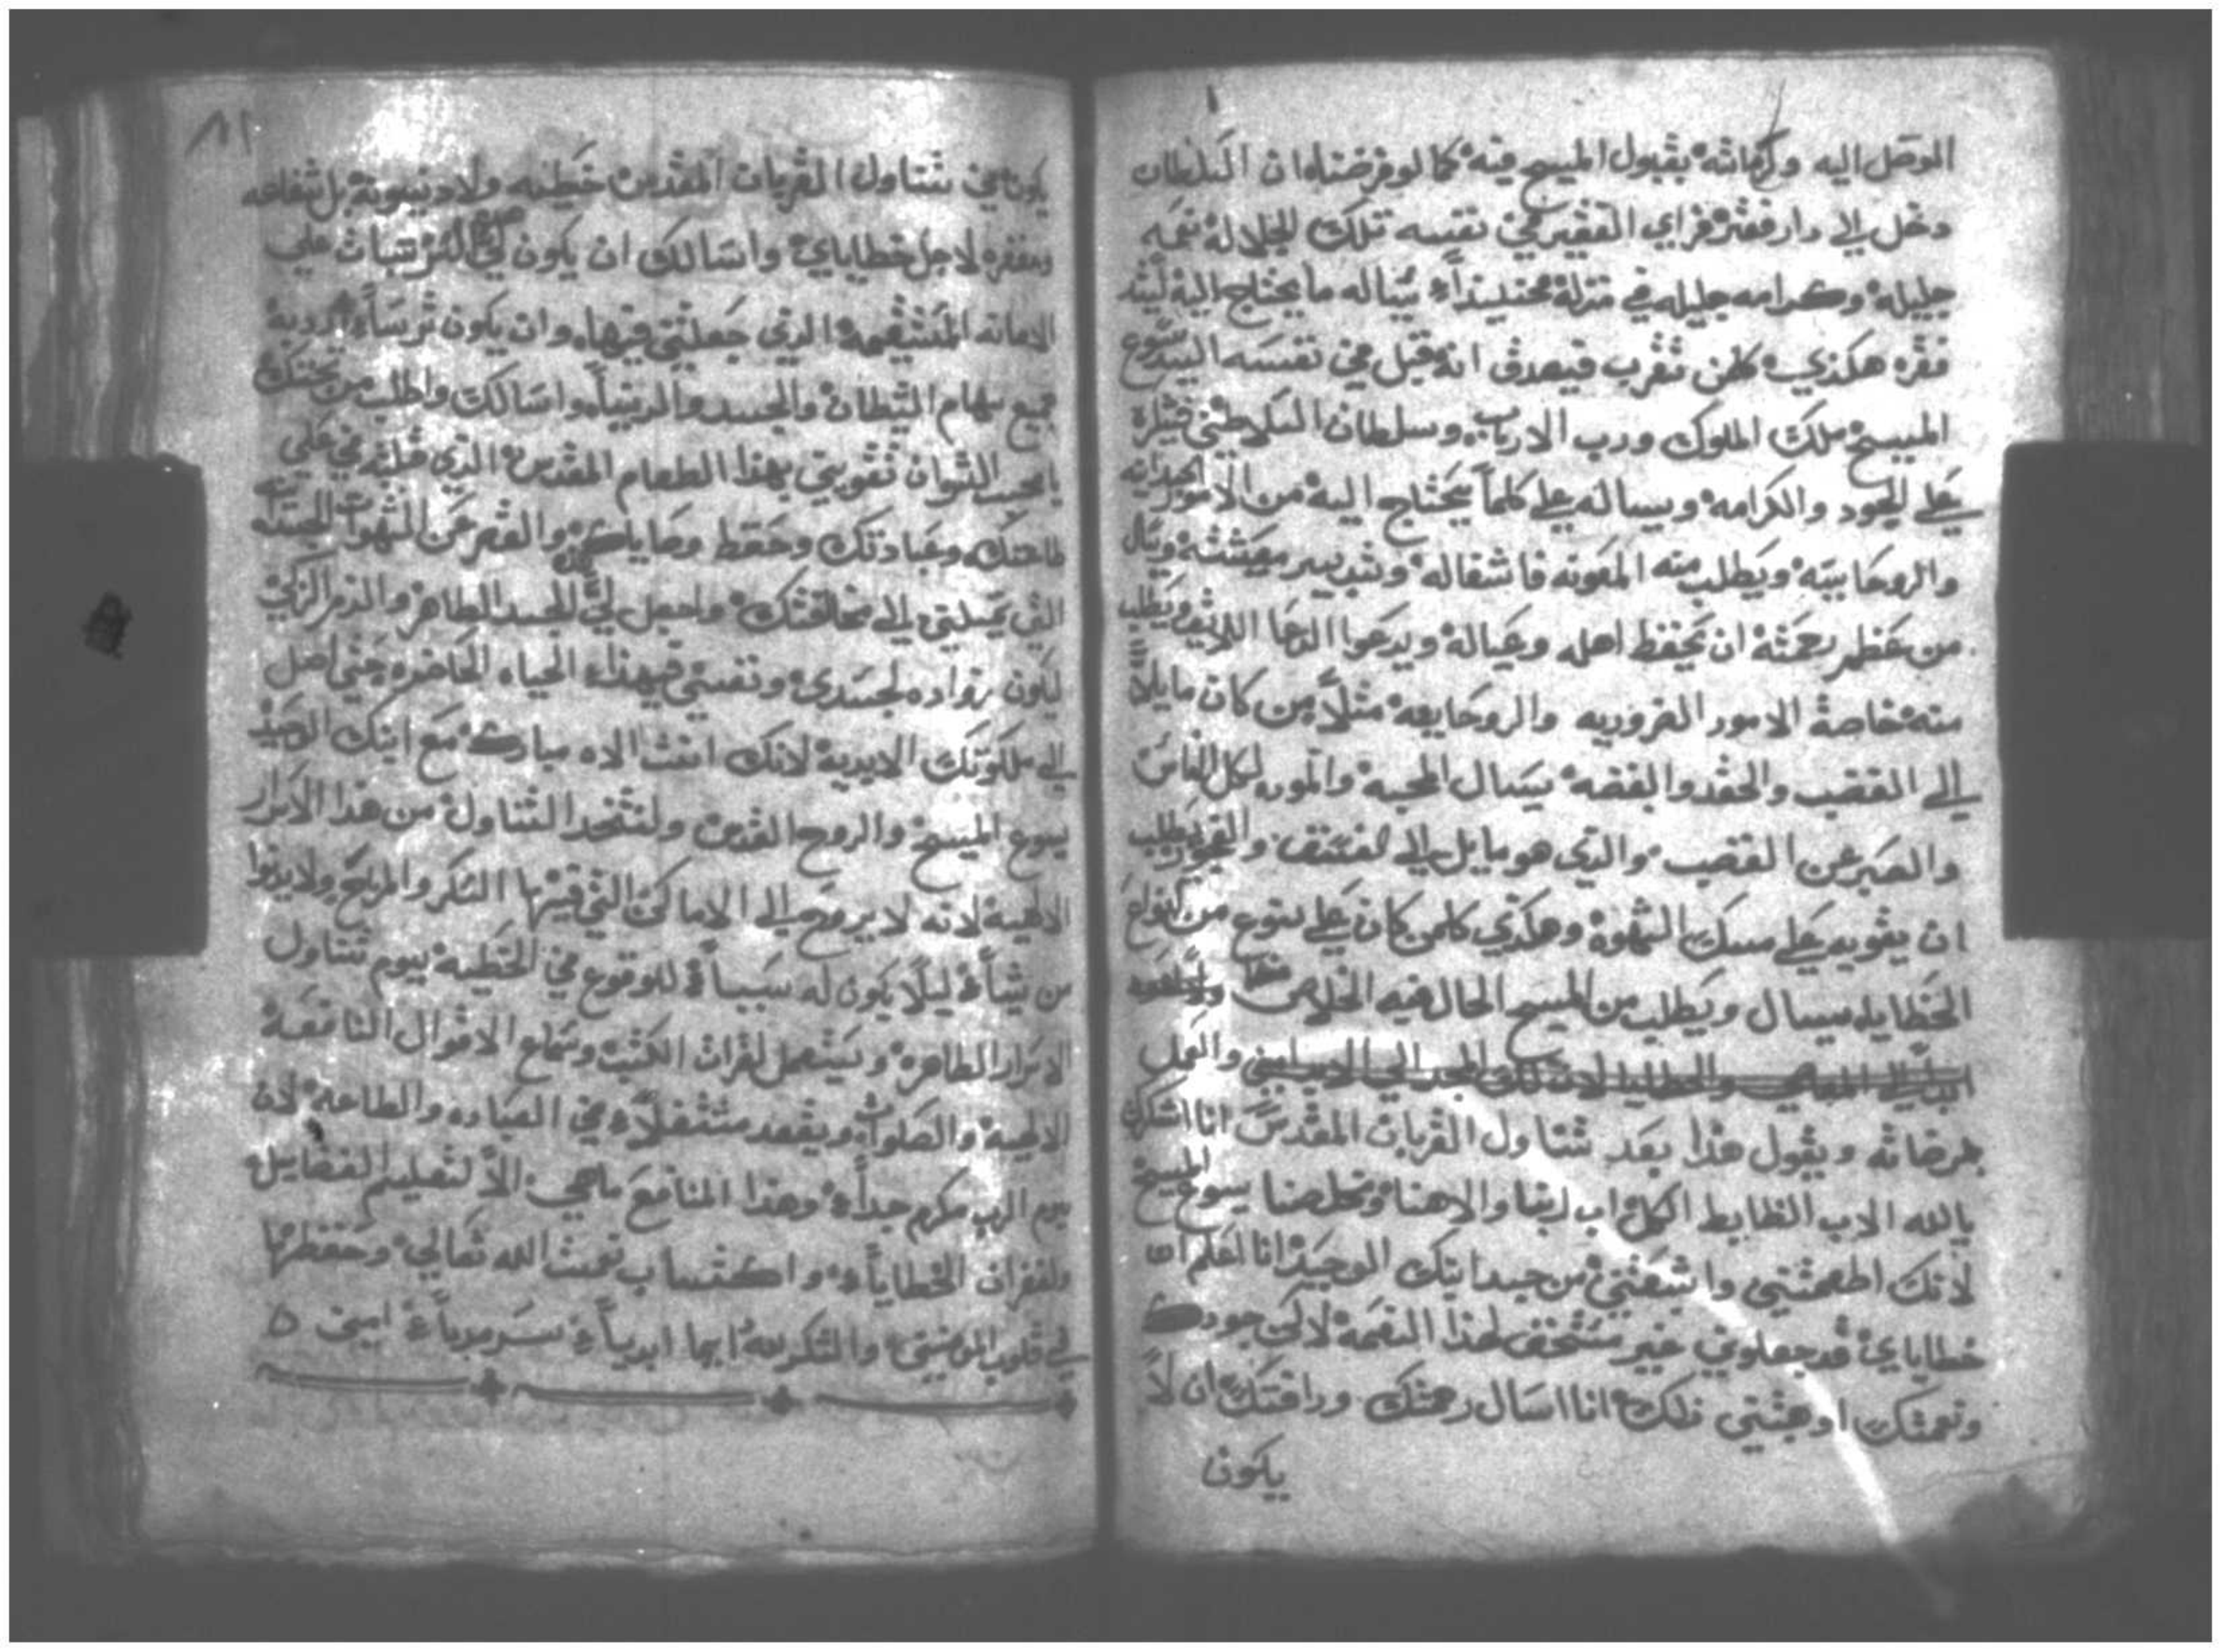 الموصل اليه وكرماته بقبول المسيح فيه كما لو فرضناه ان السلطان
دخل الي دار فقير فراي الفقير في نفسه تلك الجلالة نعمه
جليله وكرامه جليله في منزلة يساله ما يحتاج اليه
فقره هكذي كلمن تقرب فيصدق انه قبل في نفسه السيد يسوع
المسيح ملك الملوك ورب الارباب وسلطان السلاطين
علي الجود والكرامه ويساله علي كلما يحتاج اليه من الامور
والروحانيه ويطلب منه المعونه فاشغاله وتدبير معيشته ويسال
من عظم رحمته ان يحفظ اهله وعياله ويدعوا الدعا اللايق ويطلب
منه خاصة الامور الضروريه والروحانيه مثلا من كان مايلا
الي الغضب والحقد والبغضه يسال المحبه والموده لكل الناس
والصبر عن الغضب والذي هو مايل الي يطلب
ان يقويه علي مسك الشهوة وهكذي كلمن كان علي نوع من انواع
الخطايا يسال ويطلب من المسيح الحال فيه الخلاص منها
المعاصي والخطايا لان والعمل
بمرضاته ويقول هذا بعد تناول القربان المقدس انا اشكرك
يالله الاب الظابط الكل اب ربنا والاهنا ومخلصنا يسوع المسيح
لانك اطعمتني واشبعتني من جسد ابنك الوحيد انا اعلم ان
خطاياي قد جعلوني غير مستحق لهذا النعمة لاكن جودك
ونعمتك اوهبتني ذلك انا اسال رحمتك ورافتك ان لا
يكون
١١
يكون في تناول القربان المقدس خطيه ولا دينونة بل شفاعه
ومغفره لاجل خطاياي واسالك ان يكون لي الثبات علي
الامانه المستقيمه الذي جعلتني فيها وان يكون ترساً
جميع سهام الشيطان والجسد والدنيا واسالك واطلب من تحننك
يا محب ان تقويني بهذا الطعام المقدس الذي قبلته في علي
طاعتك وعبادتك وحفظ وصاياك والصبر عن الشهوات الجسدانيه
التي تميلني الي مخالفتك واجعل لي الجسد الطاهر والدم الزكي
ليكون زواده لجسدي ونفسي في هذا الحياه الحاضره حتي اصل
الي ملكوتك الابدية لانك انت الاه مبارك مع ابنك الوحيد
يسوع المسيح والروح القدس من هذا الاسرار
الالهية لانه لا يروح الي الاماكن التي فيها السكر والمزيح ولا يدنوا
من شياً ليلا يكون له سبباً للوقوع في الخطية بيوم تناول
الاسرار الطاهره ويستعمل لقرات الكتب وسماع الاقوال النافعة
الالهية والصلوات ويقعد مشتغلاً في العباده والطاعة لان
يوم الرب مكرم جداً وهذا المنافع ماهي الا لتعليم الفضايل
ولغفران الخطايا واكتساب نعمت الله تعالي وحفظها
في قلوب المومنين والشكر لله دايما ابدياً سرمدياً امين